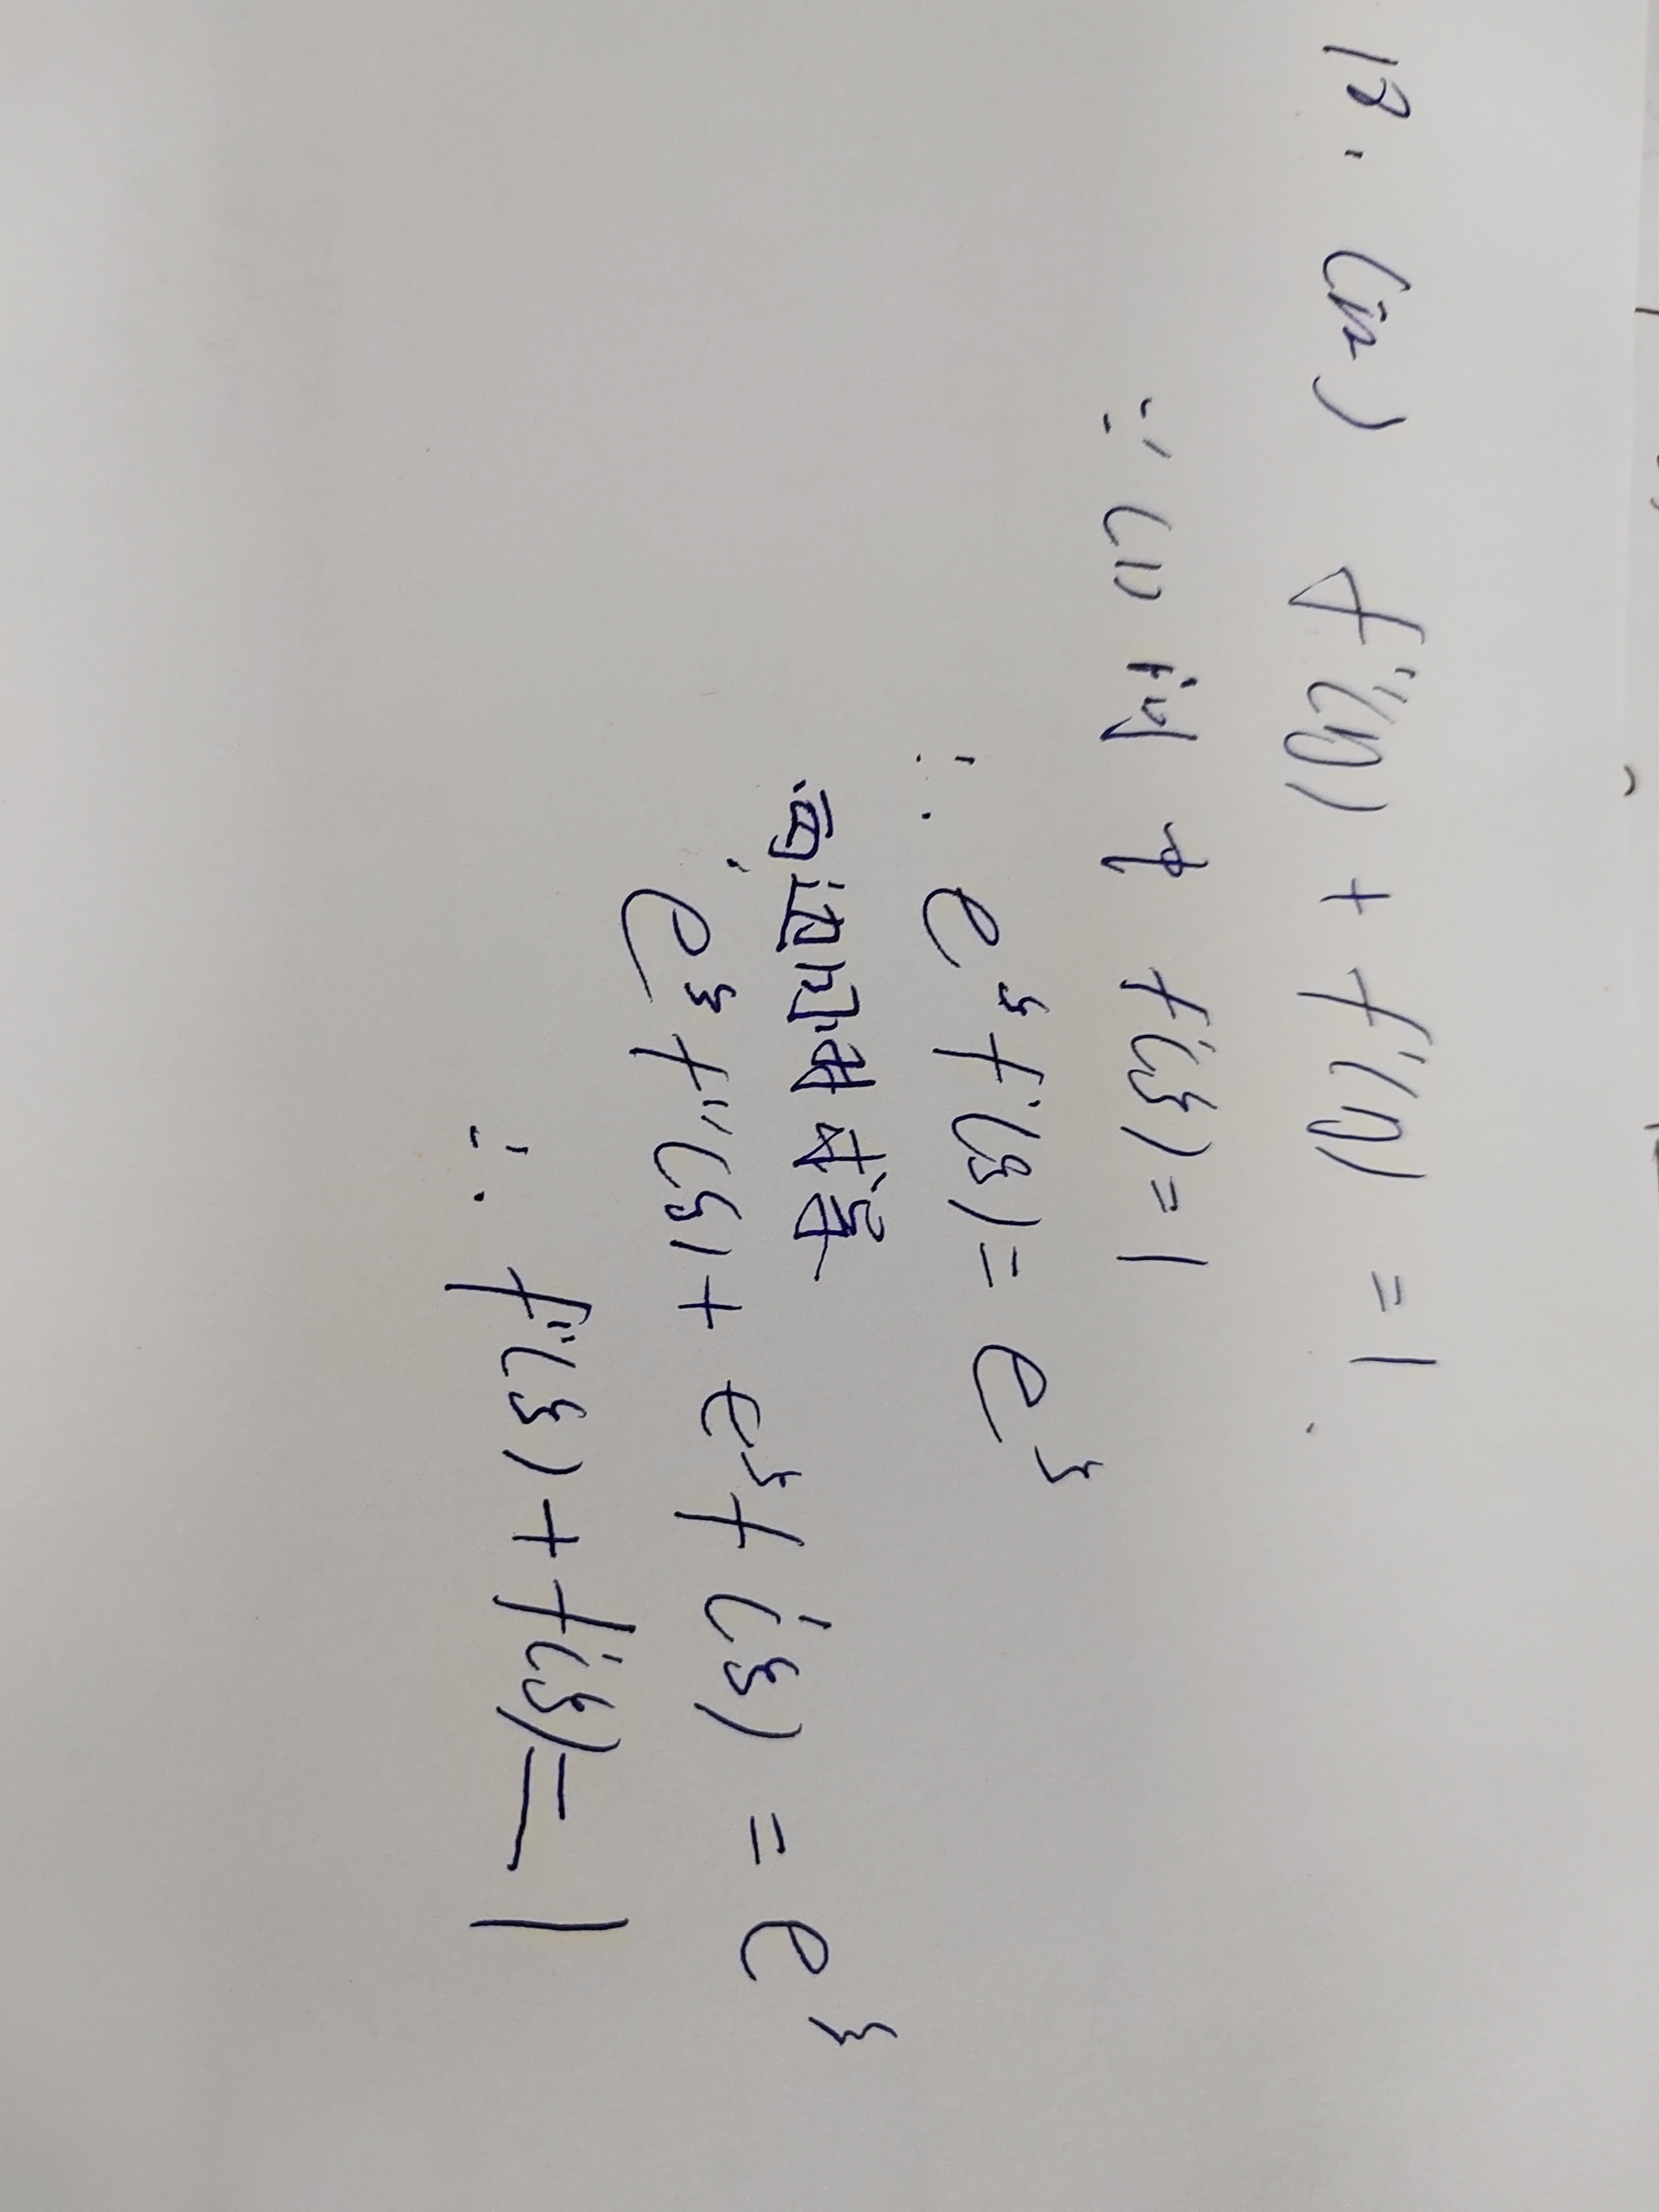 18. (2) f''(η) + f'(η) = 1
∵ (1) 问中 f'(ξ) = 1
∴ e^ξ f'(ξ) = e^ξ
两边同时求导
e^ξ f''(ξ) + e^ξ f'(ξ) = e^ξ
∴ f''(ξ) + f'(ξ) = 1